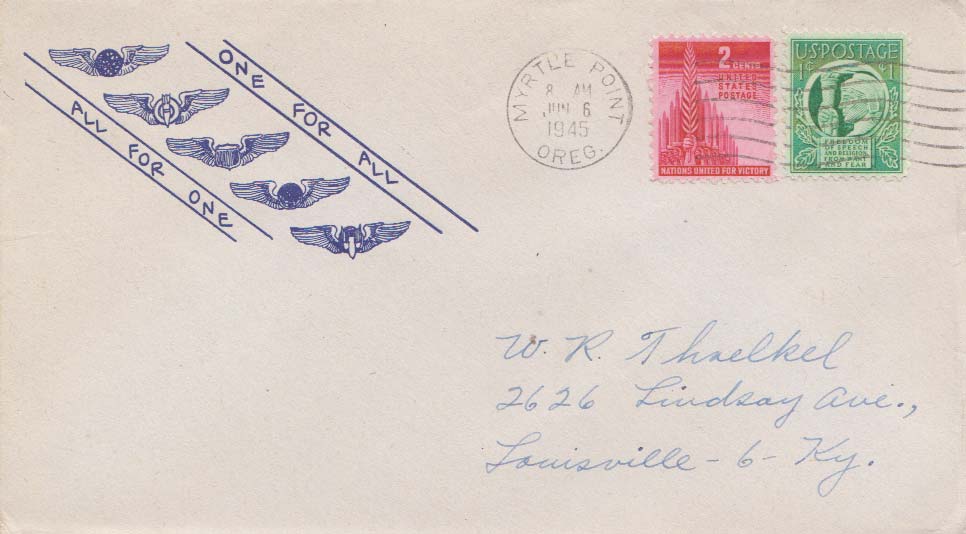 ONE FOR ALL
ALL FOR ONE
MYRTLE POINT
8 AM
JUN 6
1945
OREG.
2 CENTS
UNITED
STATES
POSTAGE
NATIONS UNITED FOR VICTORY
U·S·POSTAGE
1¢ ¢1
FREEDOM
OF SPEECH
AND RELIGION,
FROM WANT
AND FEAR
W. R. Thraelkel
2626 Lindsay Ave.,
Louisville - 6 - Ky.